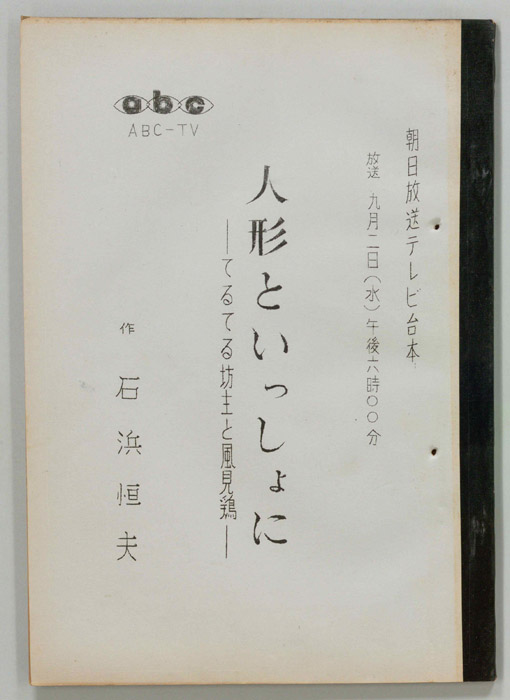 abc
ABC-TV
朝日放送テレビ台本
放送 九月二日(水)午後六時〇〇分
人形といっしょに
―てるてる坊主と風見鶏―
作 石浜恒夫